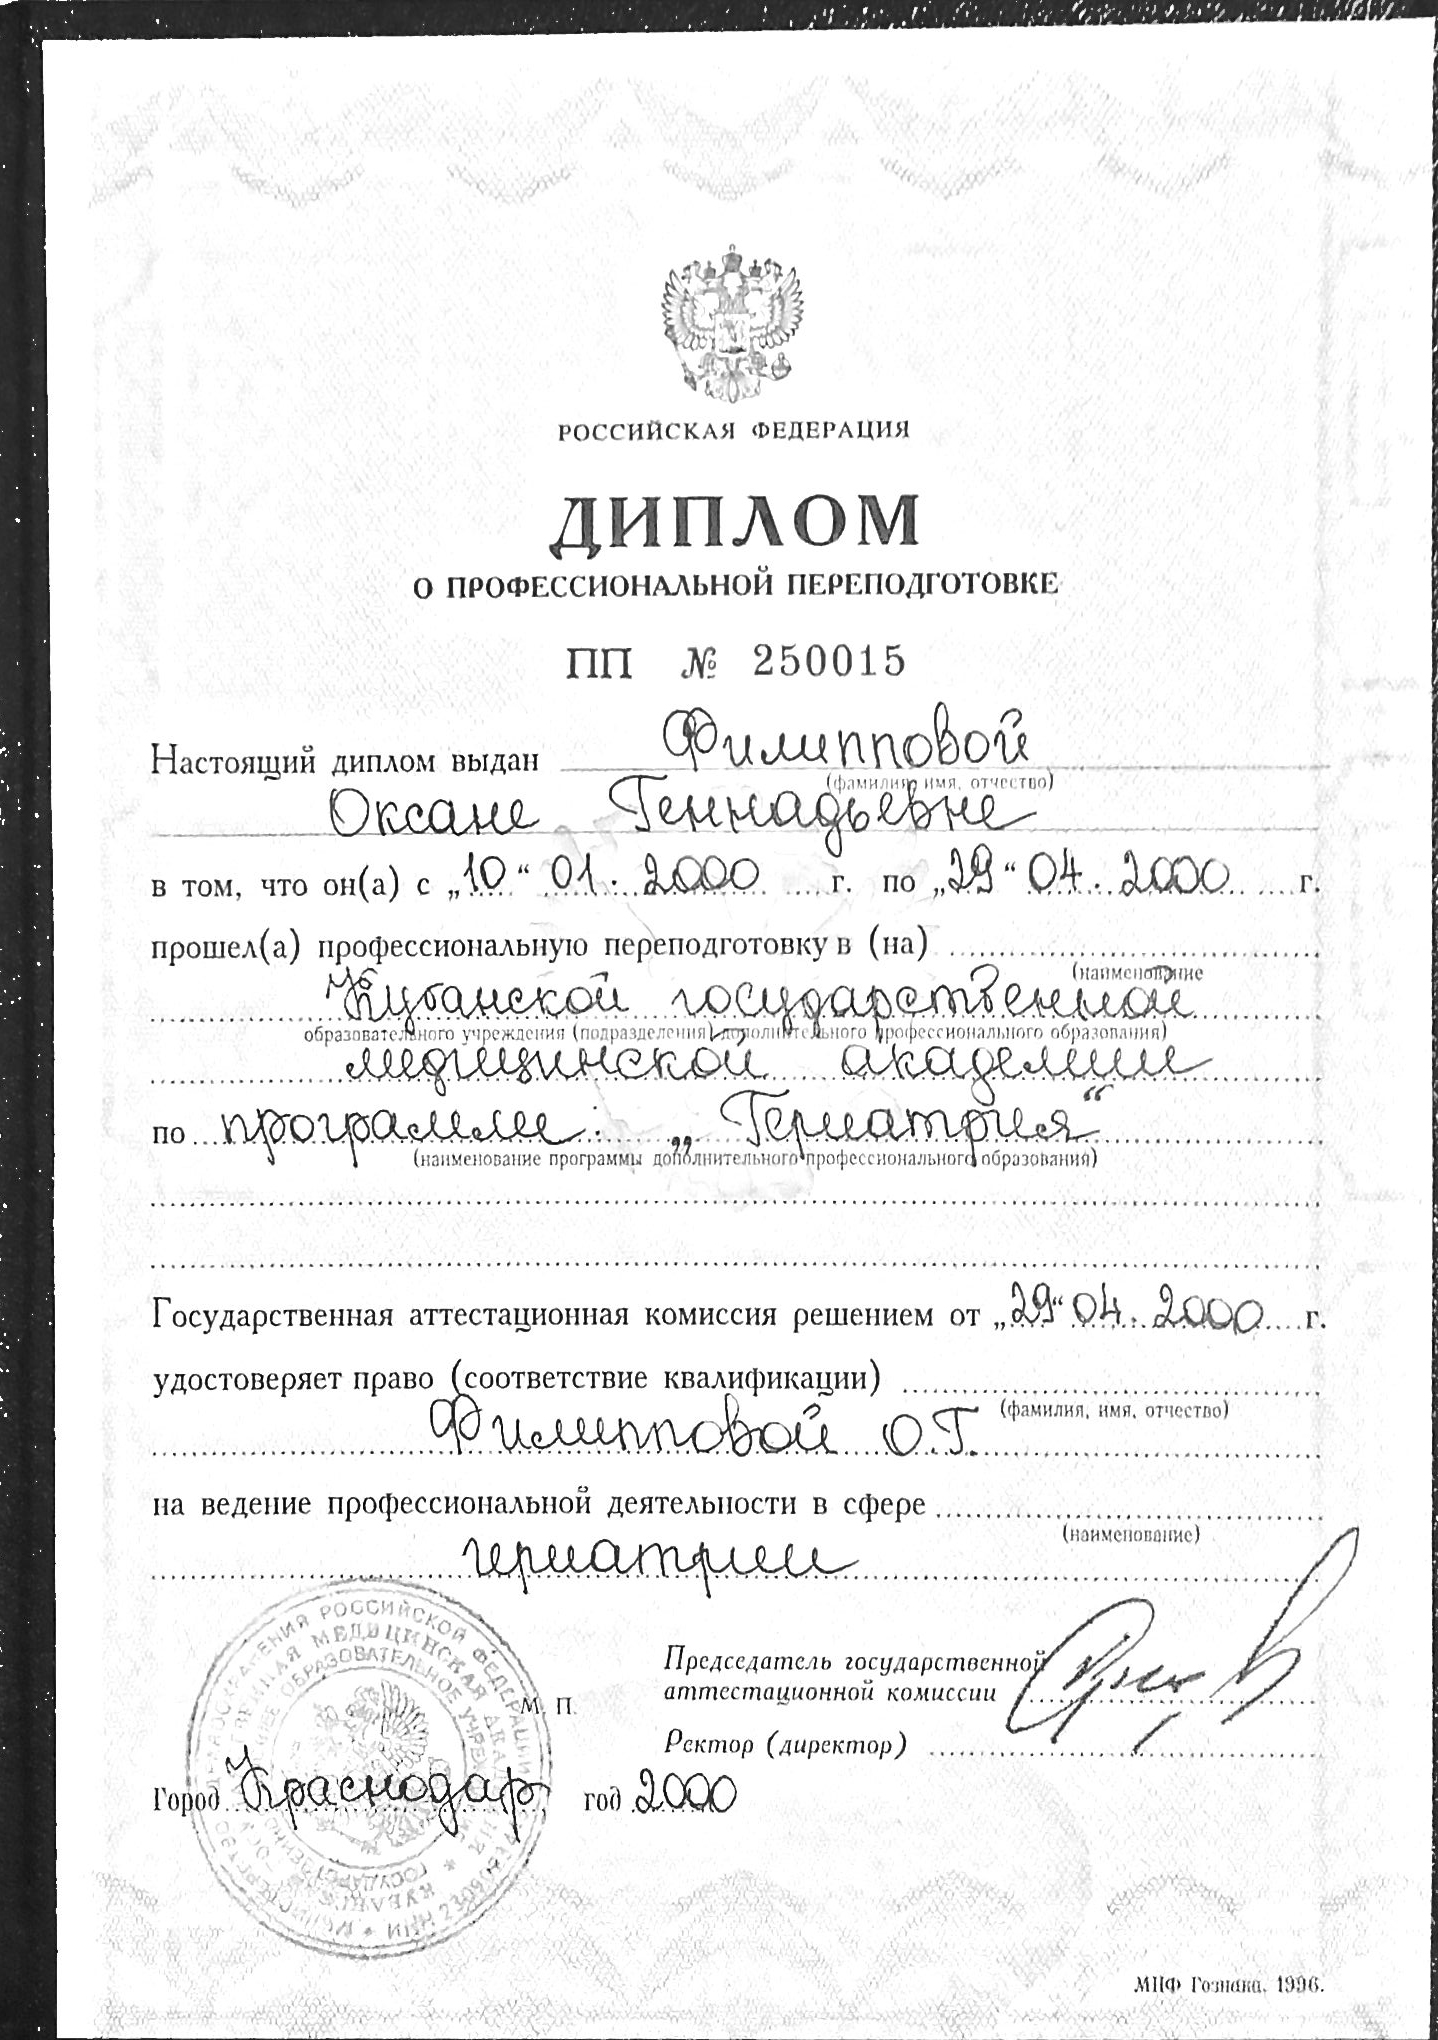 РОССИЙСКАЯ ФЕДЕРАЦИЯ
ДИПЛОМ
О ПРОФЕССИОНАЛЬНОЙ ПЕРЕПОДГОТОВКЕ
ПП № 250015
Настоящий диплом выдан Филипповой
(фамилия, имя, отчество)
Оксане Геннадьевне
в том, что он(а) с „10“ 01. 2000 г. по „29“ 04. 2000 г.
прошел(а) профессиональную переподготовку в (на)
(наименование
Кубанской государственной
образовательного учреждения (подразделения) дополнительного профессионального образования)
медицинской академии
по программе: „Гериатрия“
(наименование программы дополнительного профессионального образования)
Государственная аттестационная комиссия решением от „29“ 04. 2000 г.
удостоверяет право (соответствие квалификации)
(фамилия, имя, отчество)
Филипповой О.Г.
на ведение профессиональной деятельности в сфере
(наименование)
гериатрии
РОССИЙСКОЙ ФЕДЕРАЦИИ
МЕДИЦИНСКАЯ
ОБРАЗОВАТЕЛЬНОЕ
М. П.
Председатель государственной
аттестационной комиссии
Ректор (директор)
Город Краснодар год 2000
МПФ Гознака. 1996.